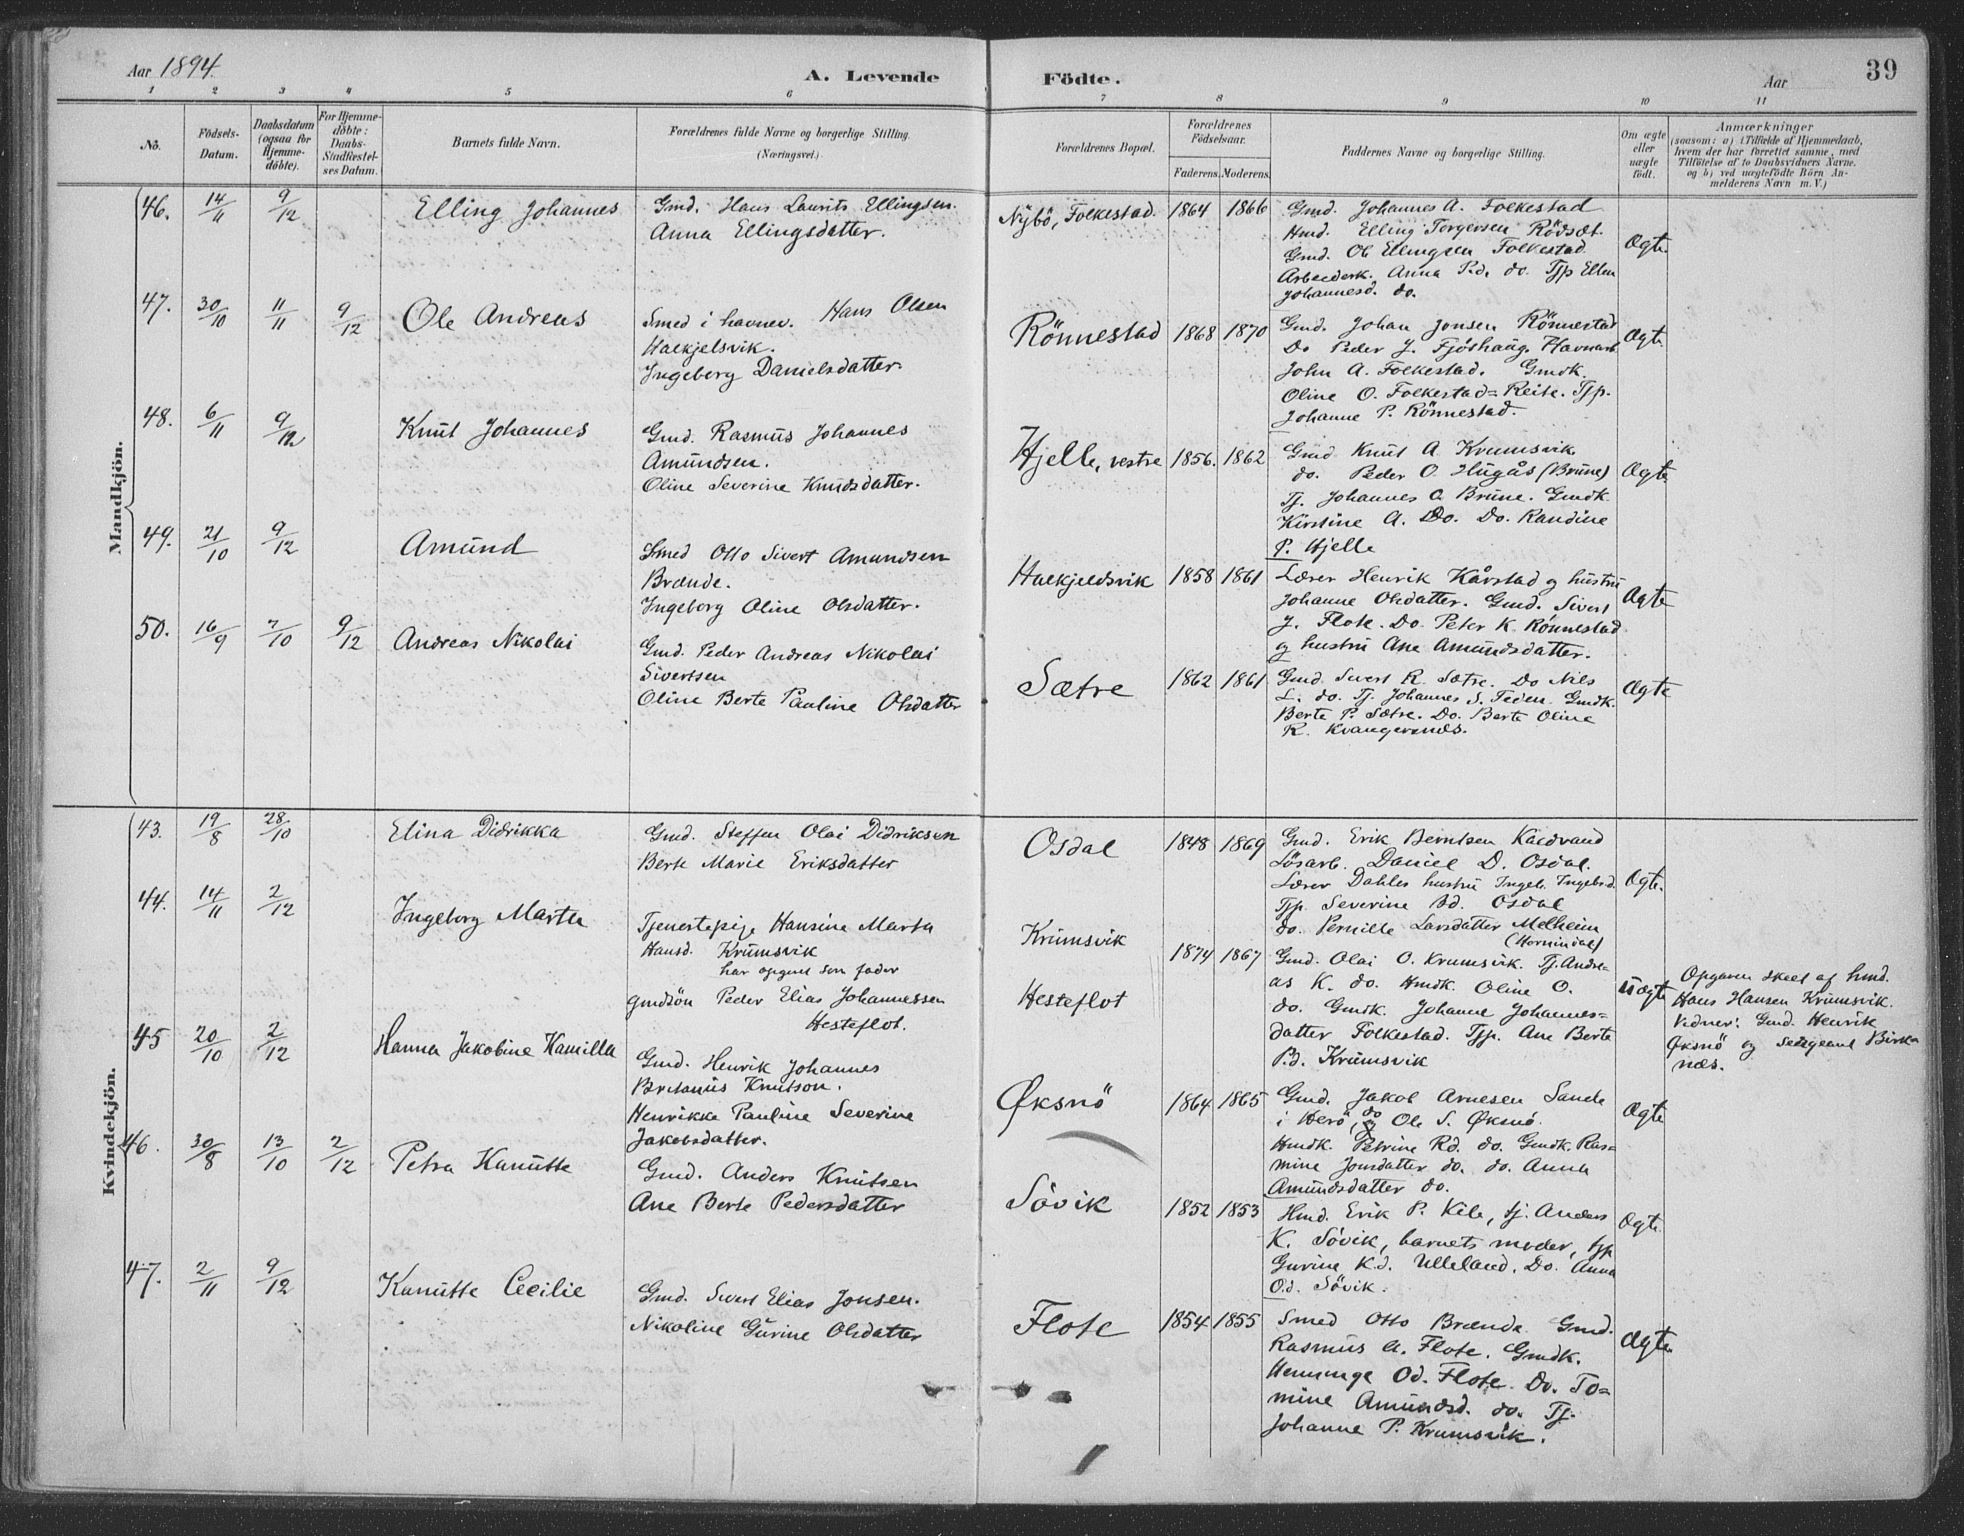 Aar 1894.
A. Levende
Födte.
Aar
39
1 2 3 4 5 6 7 8 9 10 11
No.
Födsels-
Datum.
Daabsdatum
(ogsaa for
Hjemme-
döbte).
For Hjemme-
döbte:
Daabs-
Stadfæstel-
ses Datum.
Barnets fulde Navn.
Forældrenes fulde Navne og borgerlige Stilling.
(Næringsvei).
Forældrenes Bopæl.
Forældrenes
Födselsaar.
Faderens. Moderens.
Faddernes Navne og borgerlige Stilling.
Om ægte
eller
uægte
födt.
Anmærkninger
(saasom: a) i Tilfælde af Hjemmedaab,
hvem der har forrettet samme, med
Tilföielse af to Daabsvidners Navne.
og b) ved uægtefödte Börn An-
melderens Navn m. V.)
Mandkjön.
46. 14/11 9/12 Elling Johannes
Gmd. Hans Laurits Ellingsen.
Anna Ellingsdatter.
Nybö, Folkestad. 1864 1866
Gmd. Johannes A. Folkestad
Hmd. Elling Torgersen Rödsæt.
Gmd. Ole Ellingsen Folkestad
Arbeiderk. Anna P.d. do. Tjp Ellen
Johannesd. do.
Ægte
47. 30/10 11/11 9/12 Ole Andreas
Smed i havnev. Hans Olsen
Halkjelsvik.
Ingeborg Danielsdatter.
Rönnestad 1868 1870
Gmd. Johan Jonsen Rönnestad
Do Peder J. Fjöshaug. Havnarb.
John A. Folkestad. Gmdk.
Oline O. Folkestad=Reite. Tjp.
Johanne P. Rönnestad.
Ægte
48. 6/11 9/12 Knut Johannes
Gmd. Rasmus Johannes
Amundsen.
Oline Severine Knudsdatter.
Hjelle, vestre 1856. 1862
Gmd Knut A. Krumsvik
do. Peder O. Hugås (Brune)
Tj. Johannes O. Brune. Gmdk
Kirstine A. Do. Do. Randine
P. Hjelle
Ægte
49. 21/10 9/12 Amund
Smed Otto Sivert Amundsen
Brænde.
Ingeborg Oline Olsdatter.
Halkjeldsvik 1858 1861
Lærer Henrik Kårstad og hustru
Johanne Olsdatter. Gmd. Sivert
J. Flote. Do. Peter K. Rönnestad
og hustru Ane Amundsdatter.
Ægte
50. 16/9 7/10 9/12 Andreas Nikolai
Gmd. Peder Andreas Nikolai
Sivertsen
Oline Berte Pauline Olsdatter
Sætre 1862 1861
Gmd Sivert R. Sætre. Do Nils
L. do. Tj. Johannes S. Gmdk.
Berte P. Sætre. Do. Berte Oline
R. Kvangersnes.
Ægte
Kvindekjön.
43. 19/8 28/10 Elina Didrikka
Gmd. Steffen Olai Didriksen
Berte Marie Eriksdatter
Osdal 1848 1869
Gmd. Erik Berntsen Kaldvand
Lösarb. Daniel D. Osdal.
Lærer Dahles hustru Ingeb. Ingebr.d.
Tjp. Severine Bd. Osdal
do. Pernille Larsdatter Melheim
(Hornindal)
Ægte.
44. 14/11 2/12 Ingeborg Marta
Tjenestepige Hansine Marta
Hansd. Krumsvik
har opgivet som fader
gmdsön Peder Elias Johannessen
Hesteflot.
Krumsvik
Hesteflot
1874 1867
Gmd. Olai O. Krumsvik. Tj. Andre-
as K. do. Hmdk. Oline O.
do. Gmdk. Johanne Johannes=
datter Folkestad. Tjp. Ane Berte
P.d. Krumsvik
uægte
Opgaven skeet af hmd.
Hans Hansen Krumsvik.
Vidner: Gmd. Henrik
Øksnö og sergeant Birke
næs.
45 20/10 2/12 Hanna Jakobine Kamilla
Gmd. Henrik Johannes
Britanus Knutson.
Henrikke Pauline Severine
Jakobsdatter.
Øksnö 1864 1865
Gmd. Jakob Arnesen Sande
i Herö, do og Ole S. Øksnö.
Hmdk. Petrine Rd. do. Gmdk. Ras=
mine Jonsdatter do. do. Anna
Amundsdatter do.
Ægte
46. 30/8 13/10 2/12 Petra Kanutte
Gmd. Anders Knutsen
Ane Berte Pedersdatter
Sövik 1852 1853
Hmd. Erik P. Kile, tj. Anders
K. Sövik, barnets moder, tjp
Gurine K.d. Ulleland. Do. Anna
O.d. Sövik.
Ægte.
47. 2/11 9/12 Kanutte Cecilie
Gmd. Sivert Elias Jonsen.
Nikoline Gurine Olsdatter
Flote 1854 1855
Smed Otto Brænde Gmd.
Rasmus A. Flote. Gmdk.
Hemminge Od. Flote. Do. To=
mine Amundsd. do. Tj.
Johanne P. Krumsvik.
Ægte